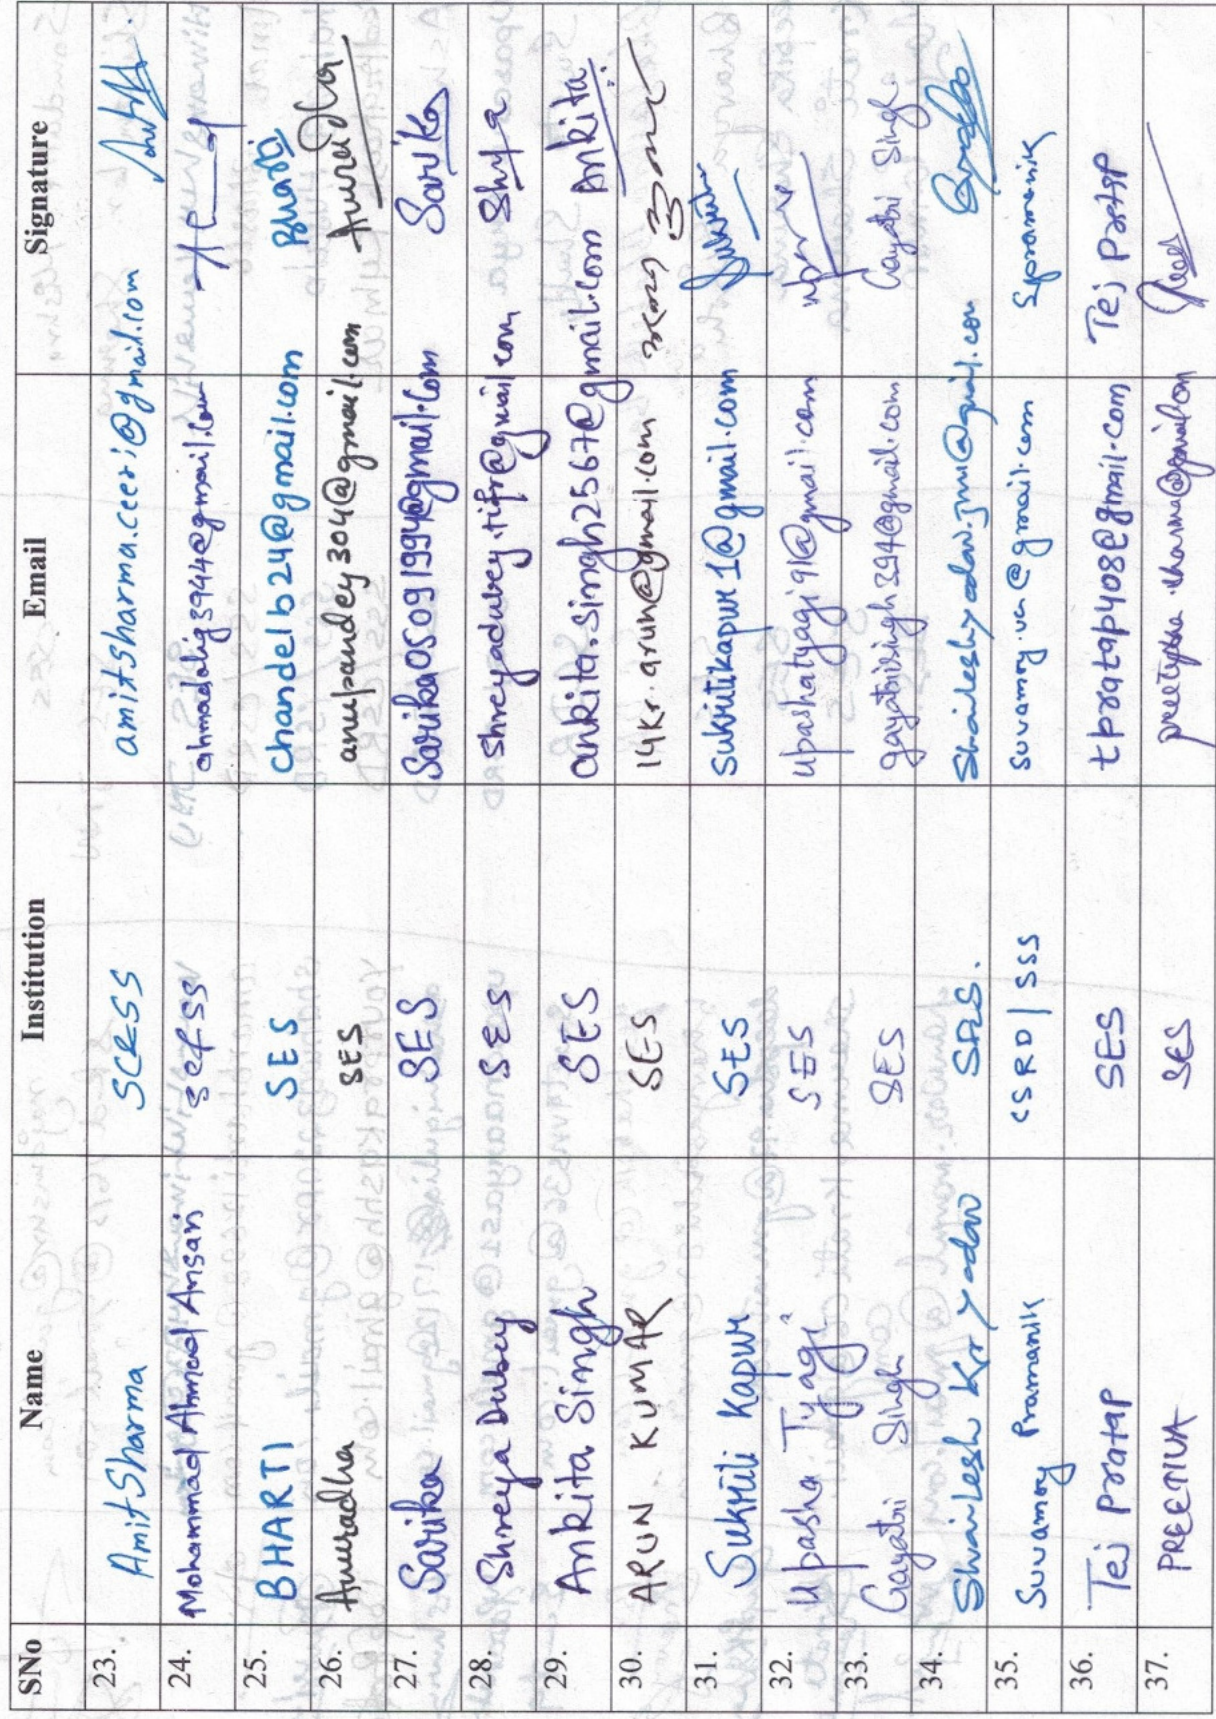 SNo Name Institution Email Signature
23. Amit Sharma SCRSS amitsharma.ceeri@gmail.com
24. Mohammad Ahmad Ansari ahmadalig5944@gmail.com
25. BHARTI SES Chandelb24@gmail.com Bharti
26. Anuradha SES anupandey304@gmail.com Anuradha
27. Sarika SES Sarika05091994@gmail.com Sarika
28. Shreya Dubey SES Shreyadubey.tifr@gmail.com
29. Ankita Singh SES ankita.singh2567@gmail.com Ankita
30. ARUN KUMAR SES 14Kr.arun@gmail.com
31. Sukriti Kapur SES sukritikapur1@gmail.com
32. Upasha Tyagi SES upashatyagi91@gmail.com
33. Gayatri Singh SES gayatrisingh394@gmail.com Gayatri Singh
34. Shailesh Kr Yadav Shaileshyadav.jnu@gmail.com
35. Suvamoy Pramanik CSRD | SSS suvamoy.ven@gmail.com Spramanik
36. Tej Pratap SES tpratap408@gmail.com Tej Pratap
37. SES